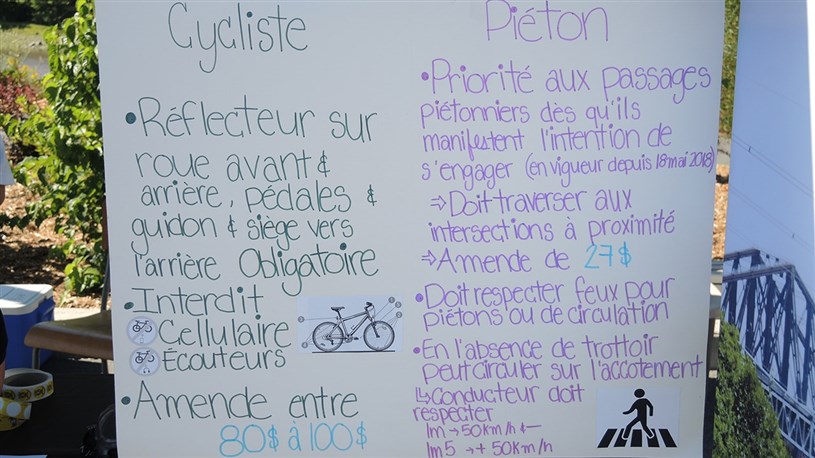 Cycliste
• Réflecteur sur
roue avant &
arrière, pédales &
guidon & siège vers
l'arrière Obligatoire
• Interdit
Cellulaire
Écouteurs
• Amende entre
80$ à 100$
Piéton
• Priorité aux passages
piétonniers dès qu'ils
manifestent l'intention de
s'engager (en vigueur depuis 18 mai 2018)
⇒ Doit traverser aux
intersections à proximité
⇒ Amende de 27$
• Doit respecter feux pour
piétons ou de circulation
• En l'absence de trottoir
peut circuler sur l'accotement
↳ Conducteur doit
respecter
1m → 50km/h ←
1m5 → + 50km/h